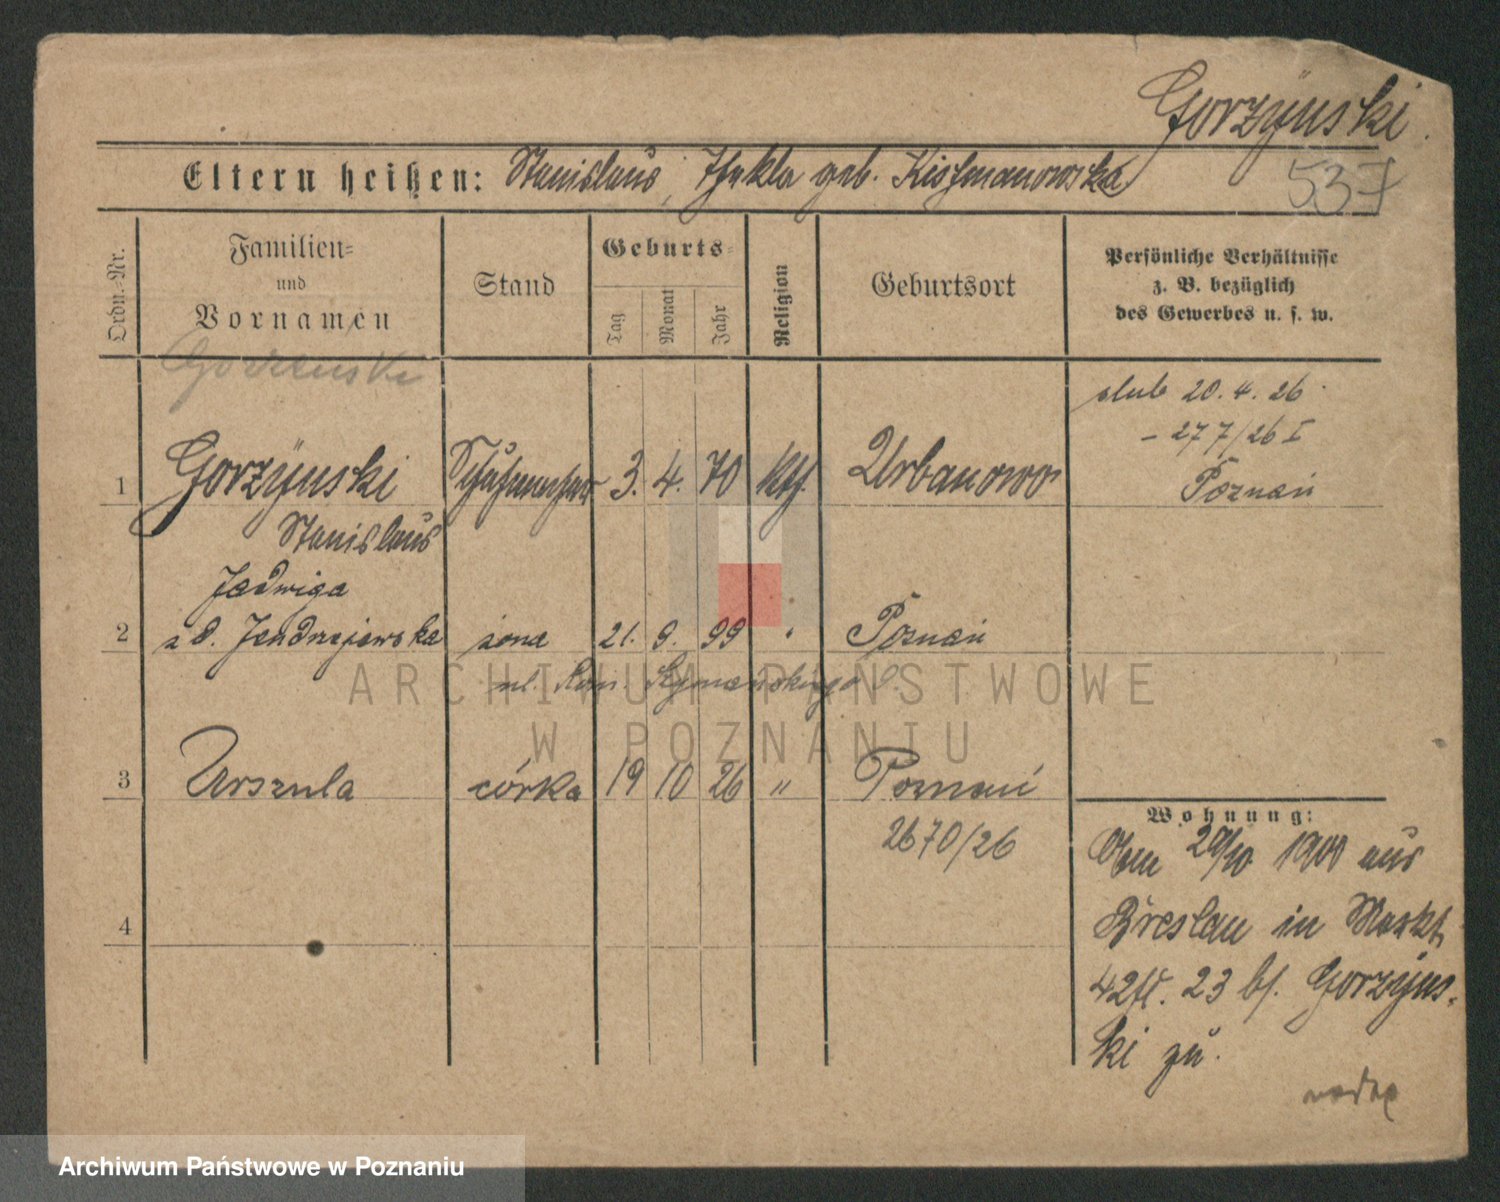 Gorzÿnski
Eltern heißen: Stanislaus, Thekla geb.
537
Ordn.-Nr.
Familien=
und
Vornamen
Stand
Geburts=
Tag
Monat
Jahr
Religion
Geburtsort
Persönliche Verhältnisse
z. B. bezüglich
des Gewerbes u. s. w.
Gorzenski
ślub 20.4.26
277/26 I
Poznań
1 Gorzÿnski 3. 4. 70 kth. Urbanowo
Stanislaus
Jadwiga
2 z d. Jendrzejewska żona 21. 9. 99 " Poznań
ul.
3 Urszula córka 19 10 26 " Poznań
2670/26
4
Wohnung:
Am 29/10 1900 aus
Breslau in Markt
42 23 bf. Gorzÿns-
ki zu.
ARCHIWUM PAŃSTWOWE
W POZNANIU
Archiwum Państwowe w Poznaniu